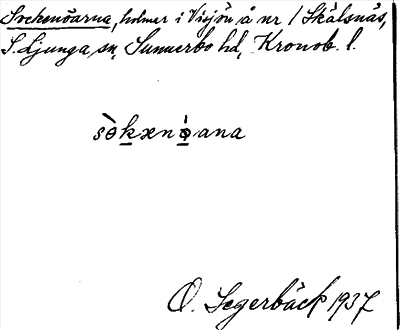 Sockenöarna, holmar i Visjön å nr 1 Skälsnäs,
S. Ljunga sn, Sunnerbo hd, Kronob. l.
O. Segerbäck 1937